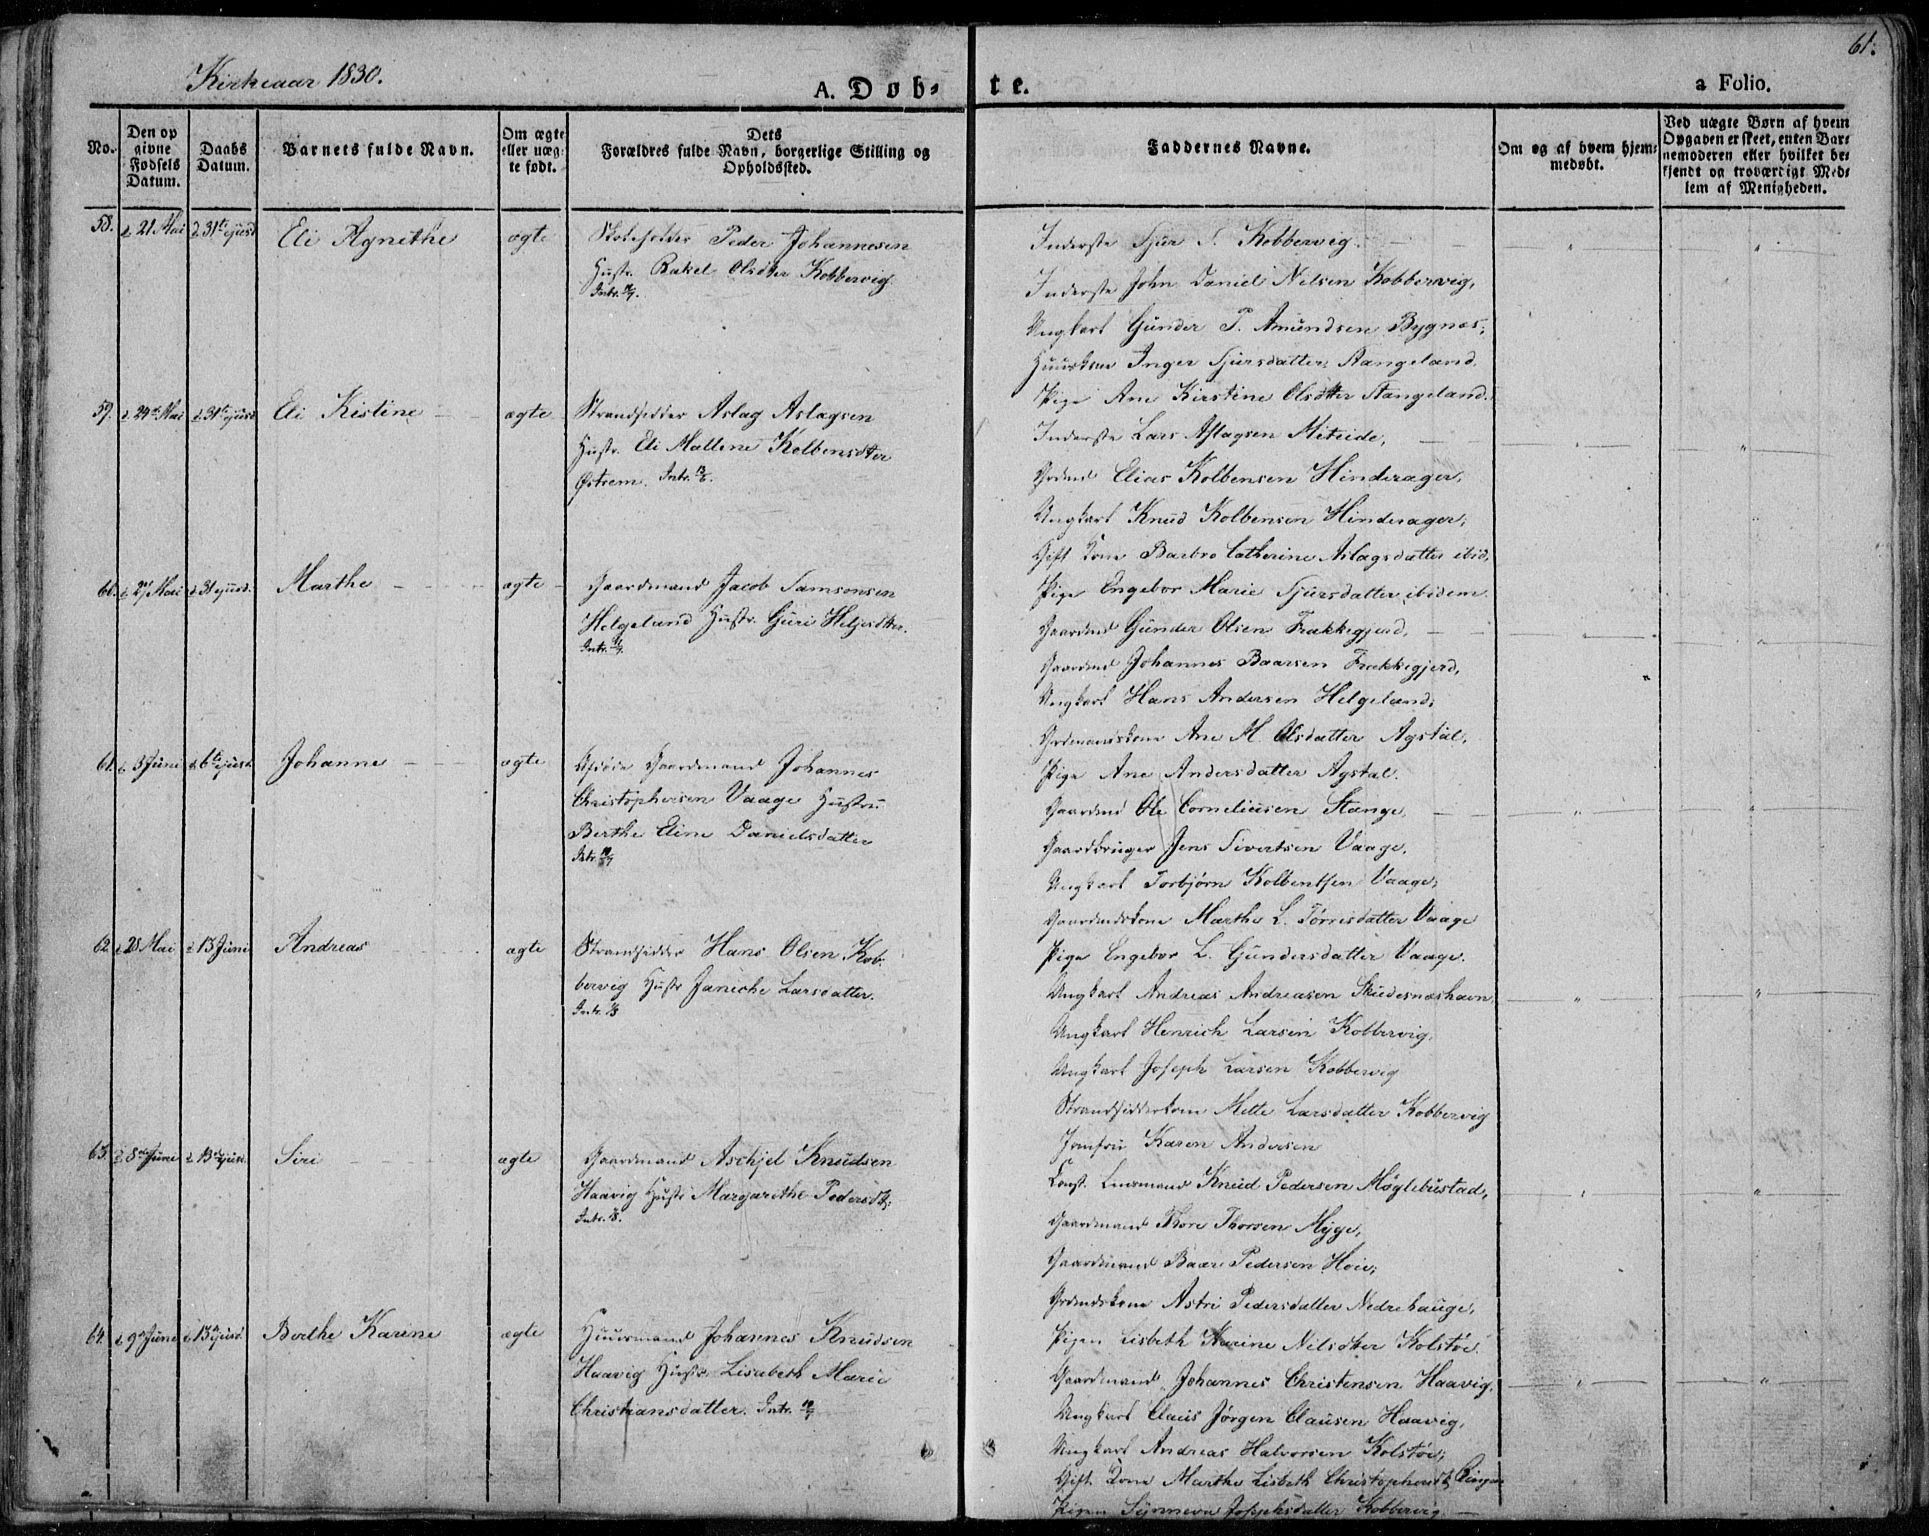 Kirkeaar 1830.
A. Døb-
te.
a Folio.
61.
No.
Den op
givne
Fødsels
Datum.
Daabs
Datum.
Barnets fulde Navn.
Om ægte
eller uæg-
te født.
Dets
Forældres fulde Navn, borgerlige Stilling og
Opholdssted.
Faddernes Navne.
Om og af hvem hjem-
medøbt.
Ved uægte Børn af hvem
Opgaven er skeet, enten Bar-
nemoderen eller hvilket be-
kjendt og troværdigt Med-
lem af Menigheden.
58.
d 21 Mai
d 31te ejusd
Eli Agnethe
ægte
Peder Johannesen
Hustr. Rakel Olsdtter Kobbervig
Intr.
Inderste Sjur S. Kobbervig.
Inderste John Daniel Nilsen Kobbervig,
Ungkarl Gunder T. Amundsen Bygnæs,
Huuskone Inger Sjursdatter Stangeland.
Pige Ane Kirstine Olsdtter Stangeland.
59.
d 24de Mai
d 31te ejusd
Eli Kistine
ægte
Strandsidder Aslag Aslagsen
Hustr. Eli Mallene Kolbensdtter
Østrem. Intr.
Inderste Lars Aslagsen Miteide,
Grdmd Elias Kolbensen Hinderager,
Ungkarl Knud Kolbensen Hinderager,
Gift Kone Barbro Catherine Aslagsdatter ibid,
Pige Engebor Marie Sjursdatter ibidem
60.
d 27 Mai
d 31 ejusd.
Marthe
ægte
Gaardmand Jacob Samsonsen
Helgeland Hustr. Guri Helgesdtter.
Intr.
Gaardmd Gunder Olsen Frakkegjerd,
Gaardmd Johannes Baarsen Frakkegjerd,
Ungkarl Hans Andersen Helgeland,
Grdmandskone Ane M. Olsdatter Agstal,
Pige Ane Andersdatter Agstal.
61.
d 3 Juni
d 6te ejusd.
Johanne
ægte
Afdøde Gaardmand Johannes
Christophersen Vaage Hustru
Berthe Eline Danielsdatter
Intr.
Gaardmd Ole Corneliusen Stange,
Gaardbruger Jens Sivertsen Vaage,
Ungkarl Torbjørn Kolbentsen Vaage,
Gaardmdskone Marthe L. Tørresdatter Vaage
Pige Engebor L. Gundersdatter Vaage.
62.
d 28 Mai
d 13 Juni
Andreas
ægte
Strandsidder Hans Olsen Kob-
bervig Hustr Janiche Larsdatter.
Intr.
Ungkarl Andreas Andreasen Skudesnæshavn
Ungkarl Henrich Larsen Kobbervig,
Ungkarl Joseph Larsen Kobbervig
Strandsidderkone Mette Larsdatter Kobbervig
Jomfru Karen Andersen
63.
d 8de Juni
d 13de ejusd.
Siri
ægte
Gaardmand Aschjel Knudsen
Haavig Hustr Margarethe Pedersdtt.
Intr.
Const. Lensmand Knud Pedersen Møglebustad,
Gaardmand Thore Thorsen Myge,
Gaardmand Baar Pedersen Hoie,
Grdmdskone Astri Pedersdatter Nedrehauge,
Pigen Lisbeth Karine Nilsdtter Kolstøe.
64.
d 9de Juni
d 13de ejusd.
Berthe Karine
ægte
Huusmand Johannes Knudsen
Haavig Hustr Lisabeth Marie
Christiansdatter. Intr.
Gaardmand Johannes Christensen Haavig,
Ungkarl Claus Jørgen Clausen Haavig,
Ungkarl Andreas Halvorsen Kolstøe,
Gift Kone Marthe Lisbeth
Pigen Synneva Josephsdatter Kobbervig